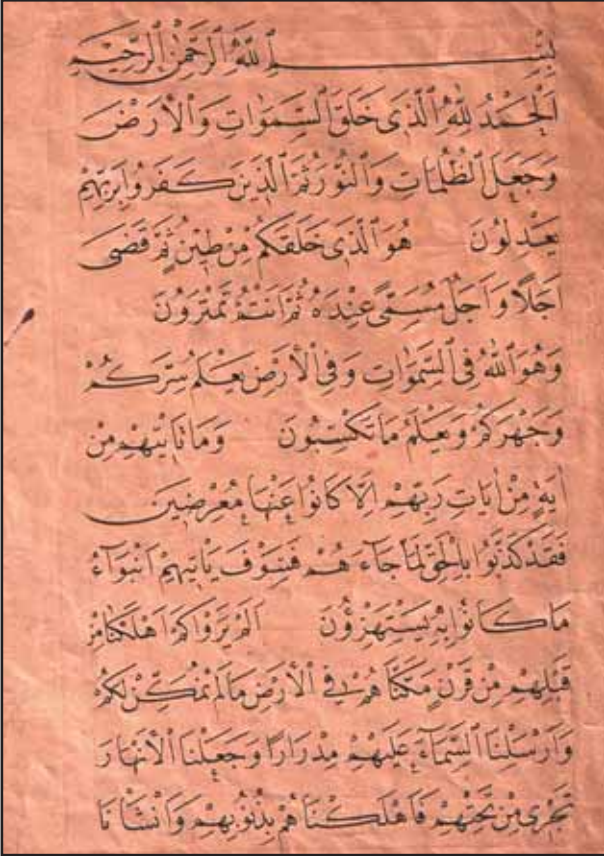 بِسْمِ اللّٰهِ الرَّحْمٰنِ الرَّحِيمِ
اَلْحَمْدُ لِلّٰهِ الَّذِى خَلَقَ السَّمٰوَاتِ وَالْاَرْضَ
وَجَعَلَ الظُّلُمَاتِ وَالنُّورَ ثُمَّ الَّذِينَ كَفَرُوا بِرَبِّهِمْ
يَعْدِلُونَ هُوَ الَّذِى خَلَقَكُمْ مِنْ طِينٍ ثُمَّ قَضَى
اَجَلًا وَاَجَلٌ مُسَمًّى عِنْدَهُ ثُمَّ اَنْتُمْ تَمْتَرُونَ
وَهُوَ اللّٰهُ فِى السَّمٰوَاتِ وَفِى الْاَرْضِ يَعْلَمُ سِرَّكُمْ
وَجَهْرَكُمْ وَيَعْلَمُ مَا تَكْسِبُونَ وَمَا تَاْتِيهِمْ مِنْ
اٰيَةٍ مِنْ اٰيَاتِ رَبِّهِمْ اِلَّا كَانُوا عَنْهَا مُعْرِضِينَ
فَقَدْ كَذَّبُوا بِالْحَقِّ لَمَّا جَاءَهُمْ فَسَوْفَ يَاْتِيهِمْ اَنْبٰؤُا
مَا كَانُوا بِهِ يَسْتَهْزِؤُنَ اَلَمْ يَرَوْا كَمْ اَهْلَكْنَا مِنْ
قَبْلِهِمْ مِنْ قَرْنٍ مَكَّنَّاهُمْ فِى الْاَرْضِ مَا لَمْ نُمَكِّنْ لَكُمْ
وَاَرْسَلْنَا السَّمَاءَ عَلَيْهِمْ مِدْرَارًا وَجَعَلْنَا الْاَنْهَارَ
تَجْرِى مِنْ تَحْتِهِمْ فَاَهْلَكْنَاهُمْ بِذُنُوبِهِمْ وَاَنْشَاْنَا